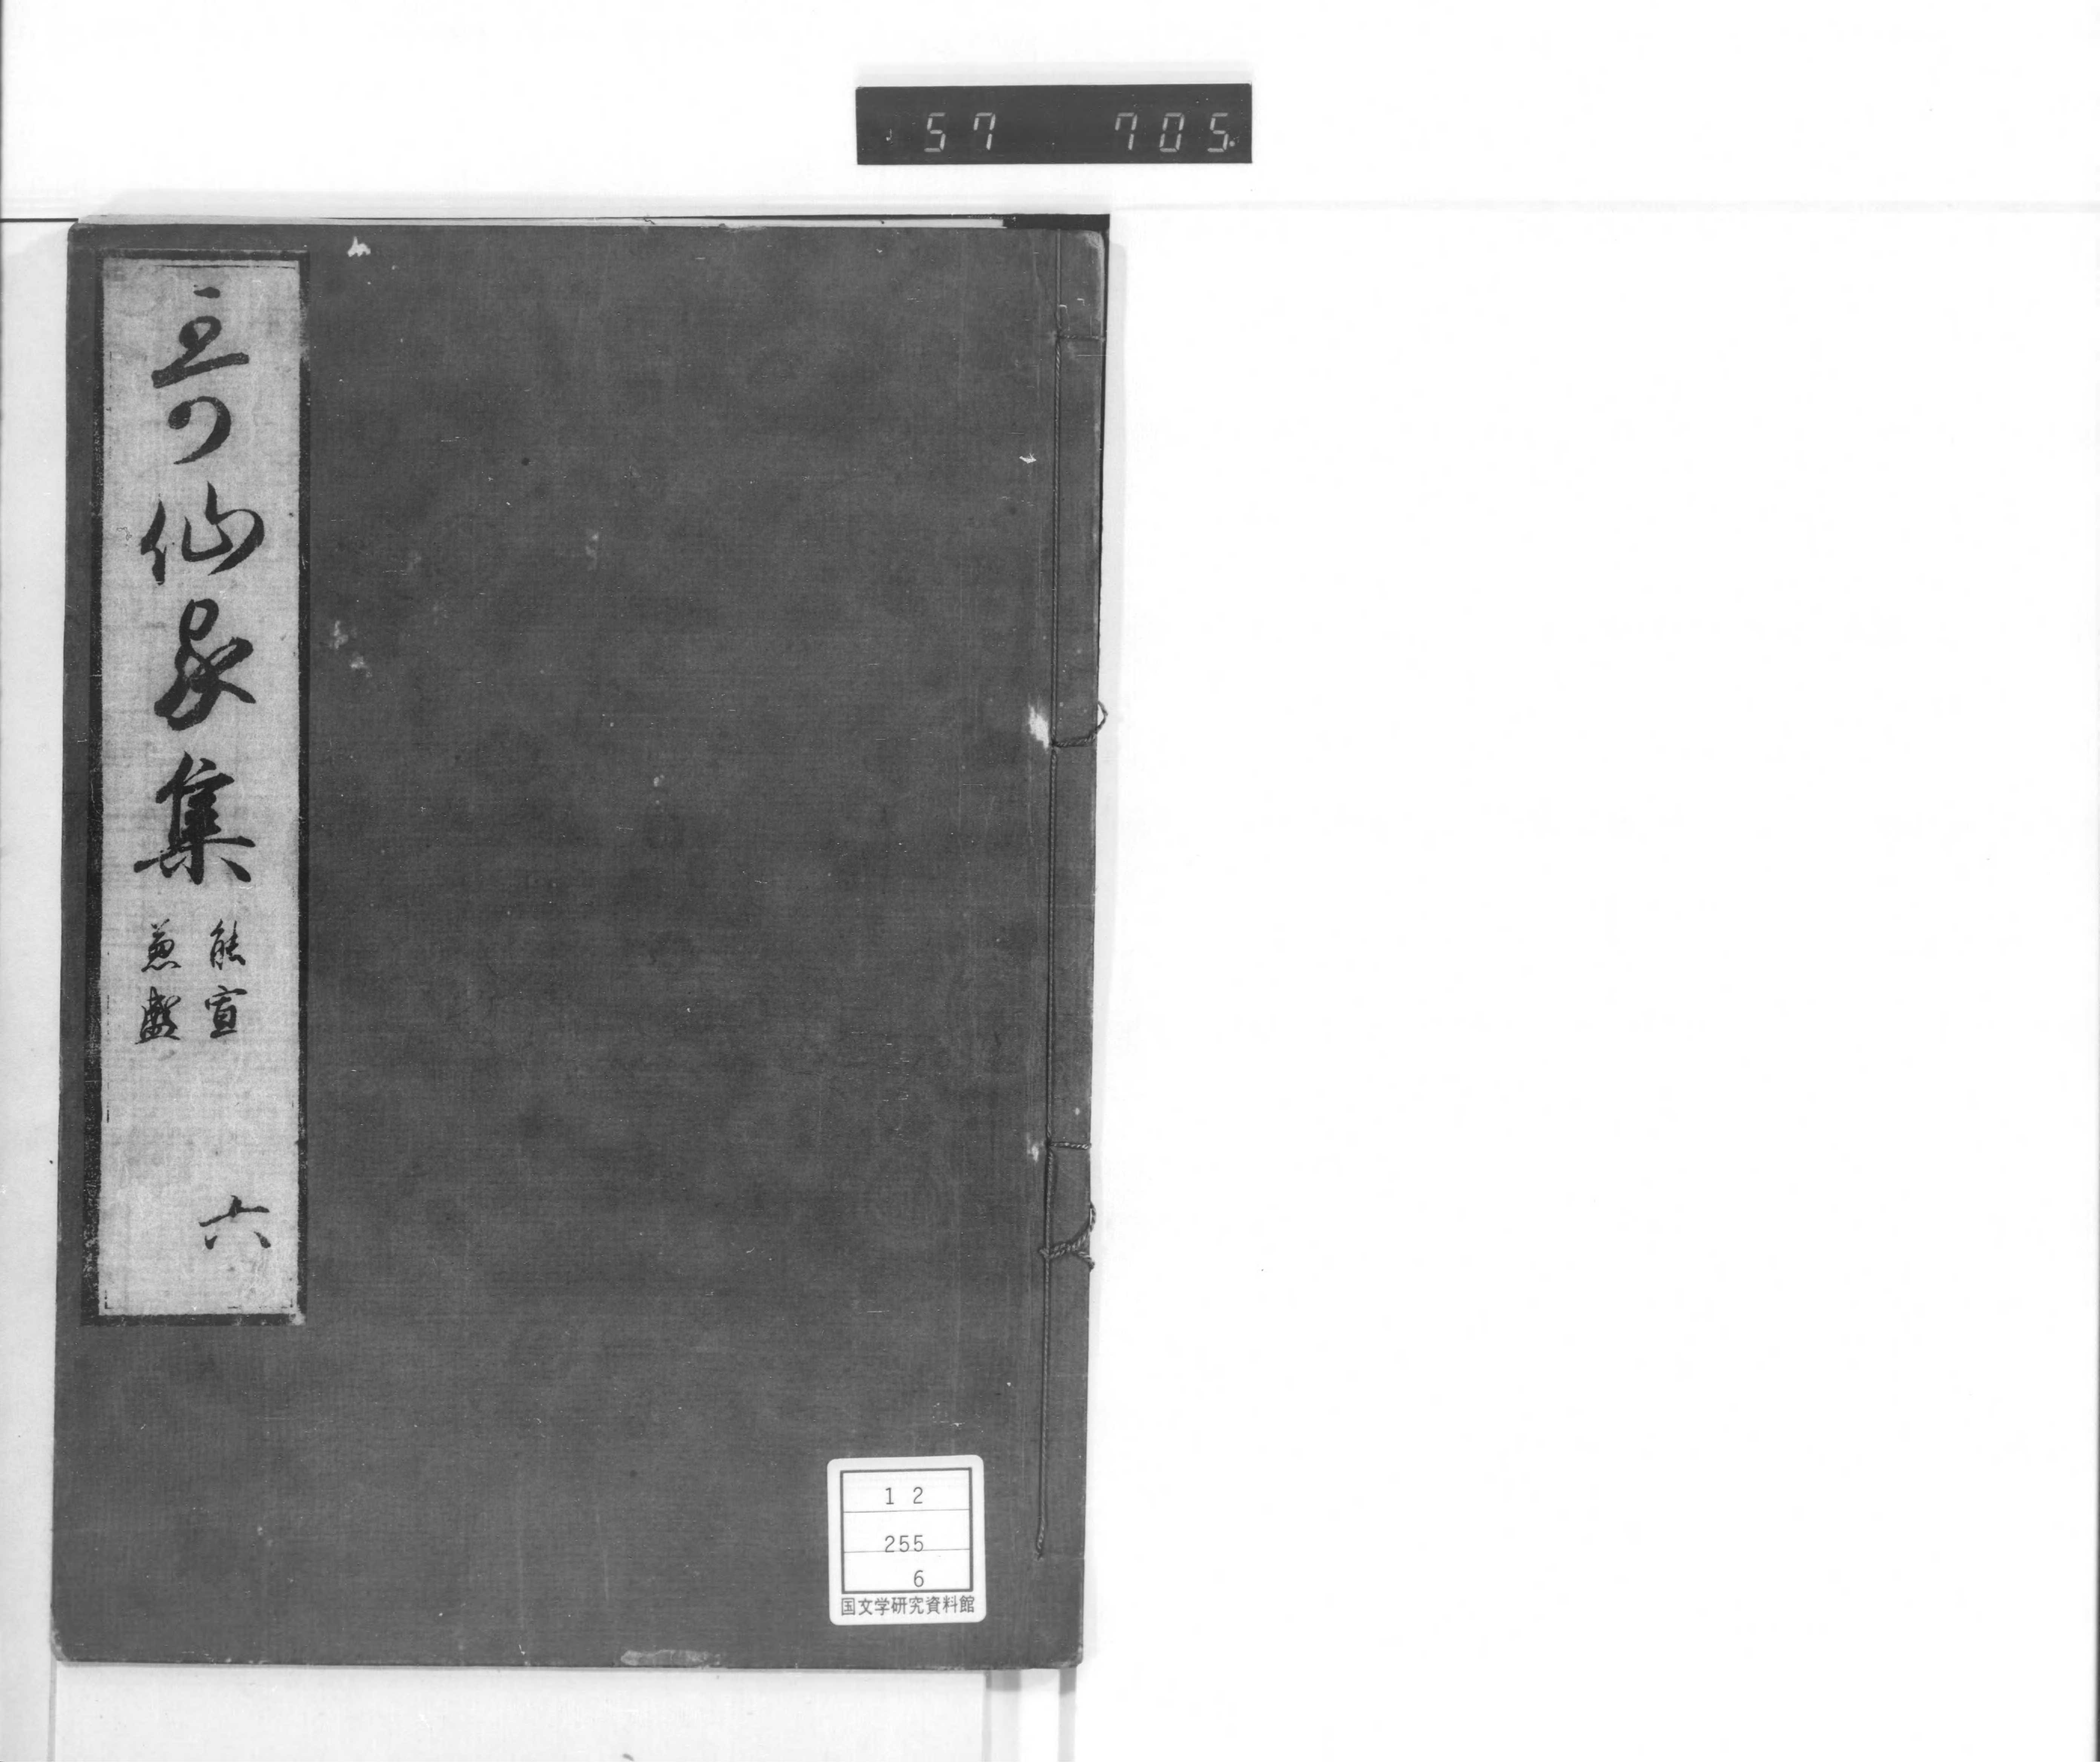 57 705
哥仙家集
能宣
兼盛
六
12
255
6
国文学研究資料館